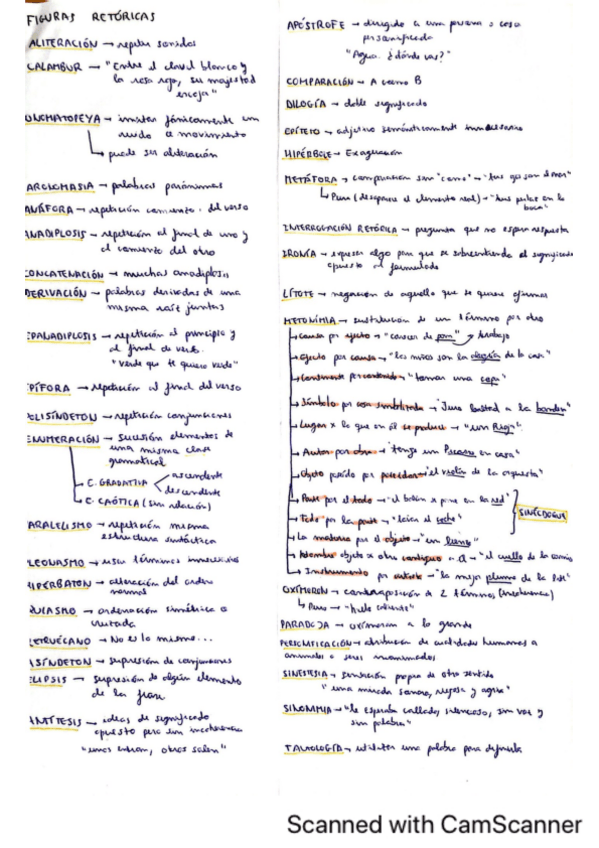 FIGURAS RETÓRICAS
ALITERACIÓN → repetir sonidos
CALAMBUR → "Entre el clavel blanco y
la rosa roja, su majestad
escoja"
ONOMATOPEYA → imitar fónicamente un
ruido o movimiento
puede ser aliteración
PARONOMASIA → palabras parónimas
ANÁFORA → repetición comienzo del verso
ANADIPLOSIS → repetición al final de uno y
al comienzo del otro
CONCATENACIÓN → muchas anadiplosis
DERIVACIÓN → palabras derivadas de una
misma raíz juntas
EPANADIPLOSIS → repetición al principio y
al final de verso.
"Verde que te quiero verde"
EPÍFORA → repetición al final del verso
POLISÍNDETON → repetición conjunciones
ENUMERACIÓN → sucesión elementos de
una misma clase
gramatical
C. GRADATIVA ascendente
descendente
C. CAÓTICA (sin relación)
PARALELISMO → repetición misma
estructura sintáctica
PLEONASMO → usar términos innecesarios
HIPÉRBATON → alteración del orden
normal
QUIASMO → ordenación simétrica o
cruzada
RETRUÉCANO → No es lo mismo...
ASÍNDETON → supresión de conjunciones
ELIPSIS → supresión de algún elemento
de la frase
ANTÍTESIS → ideas de significado
opuesto pero sin incoherencia
"unos entran, otros salen"
APÓSTROFE → dirigirse a una persona o cosa
personificada
"Agua ¿dónde vas?"
COMPARACIÓN → A como B
DILOGÍA → doble significado
EPÍTETO → adjetivo semánticamente innecesario
HIPÉRBOLE → Exageración
METÁFORA → comparación sin "como" → "tus ojos son el mar"
Pura (desaparece el elemento real) → "tus perlas en la
boca"
INTERROGACIÓN RETÓRICA → preguntas que no esperan respuesta
IRONÍA → expresar algo para que se sobreentienda el significado
opuesto al formulado
LÍTOTE → negación de aquello que se quiere afirmar
METONIMIA → sustitución de un término por otro
Causa por efecto → "carecer de pan" trabajo
Efecto por causa → "los niños son la alegría de la casa"
Continente por contenido → "tomar una copa"
Símbolo por cosa simbolizada → "Juro lealtad a la bandera"
Lugar x lo que en él se produce → "un Rioja"
Autor por obra → "tengo un Picasso en casa"
Objeto poseído por poseedor → "el violín de la orquesta"
Parte por el todo → "el balón x pone en la red"
Todo por la parte → "lavica el coche"
SINÉCDOQUE
La materia por el objeto → "un lienzo"
Nombre objeto x otro contiguo a él → "el cuello de la camisa"
Instrumento por artista → "la mejor pluma de la"
OXÍMORON → contraposición de 2 términos (incoherencia)
Puro → "hielo caliente"
PARADOJA → oxímoron a lo grande
PERSONIFICACIÓN → atribución de cualidades humanas a
animales o seres inanimados
SINESTESIA → sensación propia de otro sentido
"una mirada sonora, rugosa y agria"
SINONIMIA → "le esperaba callado, silencioso, sin voz y
sin palabra"
TAUTOLOGÍA → utilizar una palabra para definirla
Scanned with CamScanner